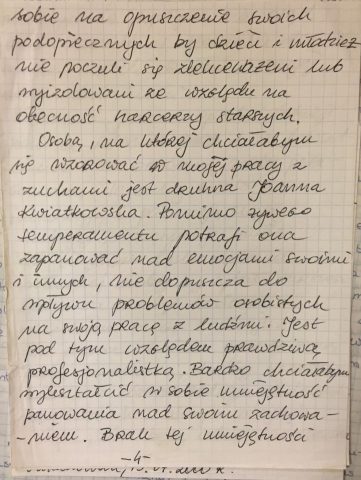 sobie na opuszczenie swoich
podopiecznych by dzieci i młodzież
nie poczuli się zlekceważeni lub
wyizolowani ze względu na
obecność harcerzy starszych.
Osobą, na której chciałabym
się wzorować w mojej pracy z
zuchami jest druhna Joanna
Kwiatkowska. Pomimo żywego
temperamentu potrafi ona
zapanować nad emocjami swoimi
i innych, nie dopuszcza do
wpływu problemów osobistych
na swoją pracę z ludźmi. Jest
pod tym względem prawdziwą
profesjonalistką. Bardzo chciałabym
wykształcić w sobie umiejętność
panowania nad swoim zachowa-
-niem. Brak tej umiejętności
-4-